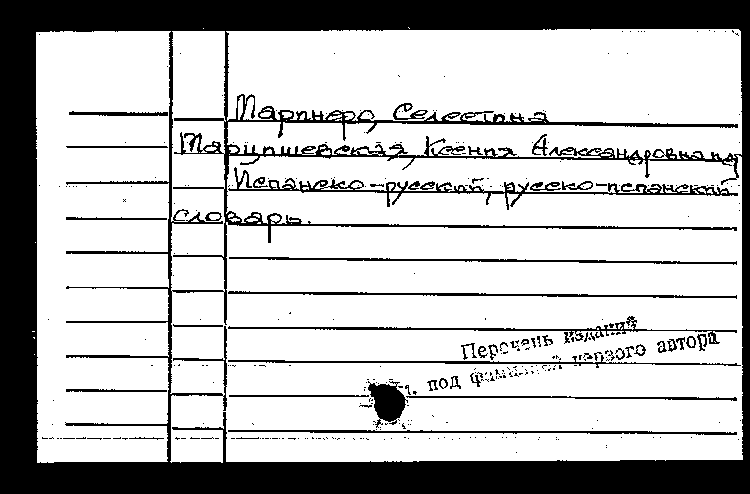 Марпнеро, Селестина
Марцишевская, Ксения Александровна
Испанско-русский, русско-испанский
словарь.
Перечень изданий
см. под фамилией первого автора